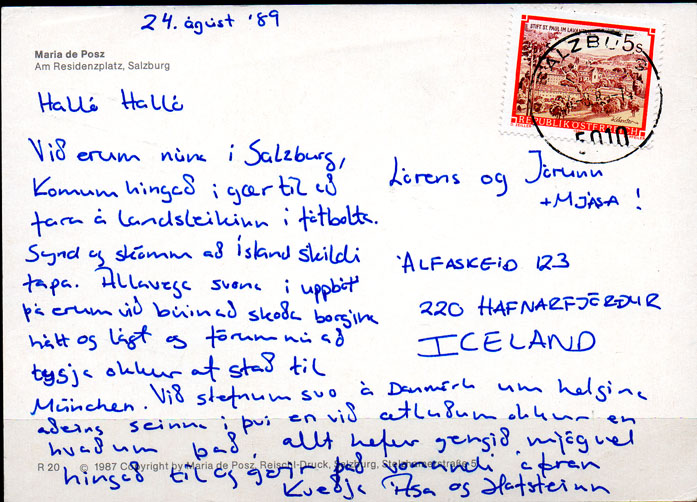 24. ágúst '89
Maria de Posz
Am Residenzplatz, Salzburg
STIFT ST. PAUL IM
5s
REPUBLIK ÖSTERREICH
SALZBURG
5010
Halló Halló
Við erum núna í Salzburg,
Komum hingað í gær til að
fara á landsleikinn í fótbolta.
Synd og skömm að Ísland skildi
tapa. Allavega svona í uppbót
þá erum við búin að skoða borgina
hátt og lágt og förum nú að
tygja okkur af stað til
München. Við stefnum svo á Danmörk um helgina
aðeins seinna í því en við ætluðum okkur en
hvað um það, allt hefur gengið mjög vel
hingað til og gerir það áfram
Kveðja Ása og Hafsteinn
Lórens og Jórunn
+ MJÁSA !
ÁLFASKEIÐ 123
220 HAFNARFJÖRÐUR
ICELAND
R 20 © 1987 Copyright by Maria de Posz, Reischl-Druck, Salzburg, 5